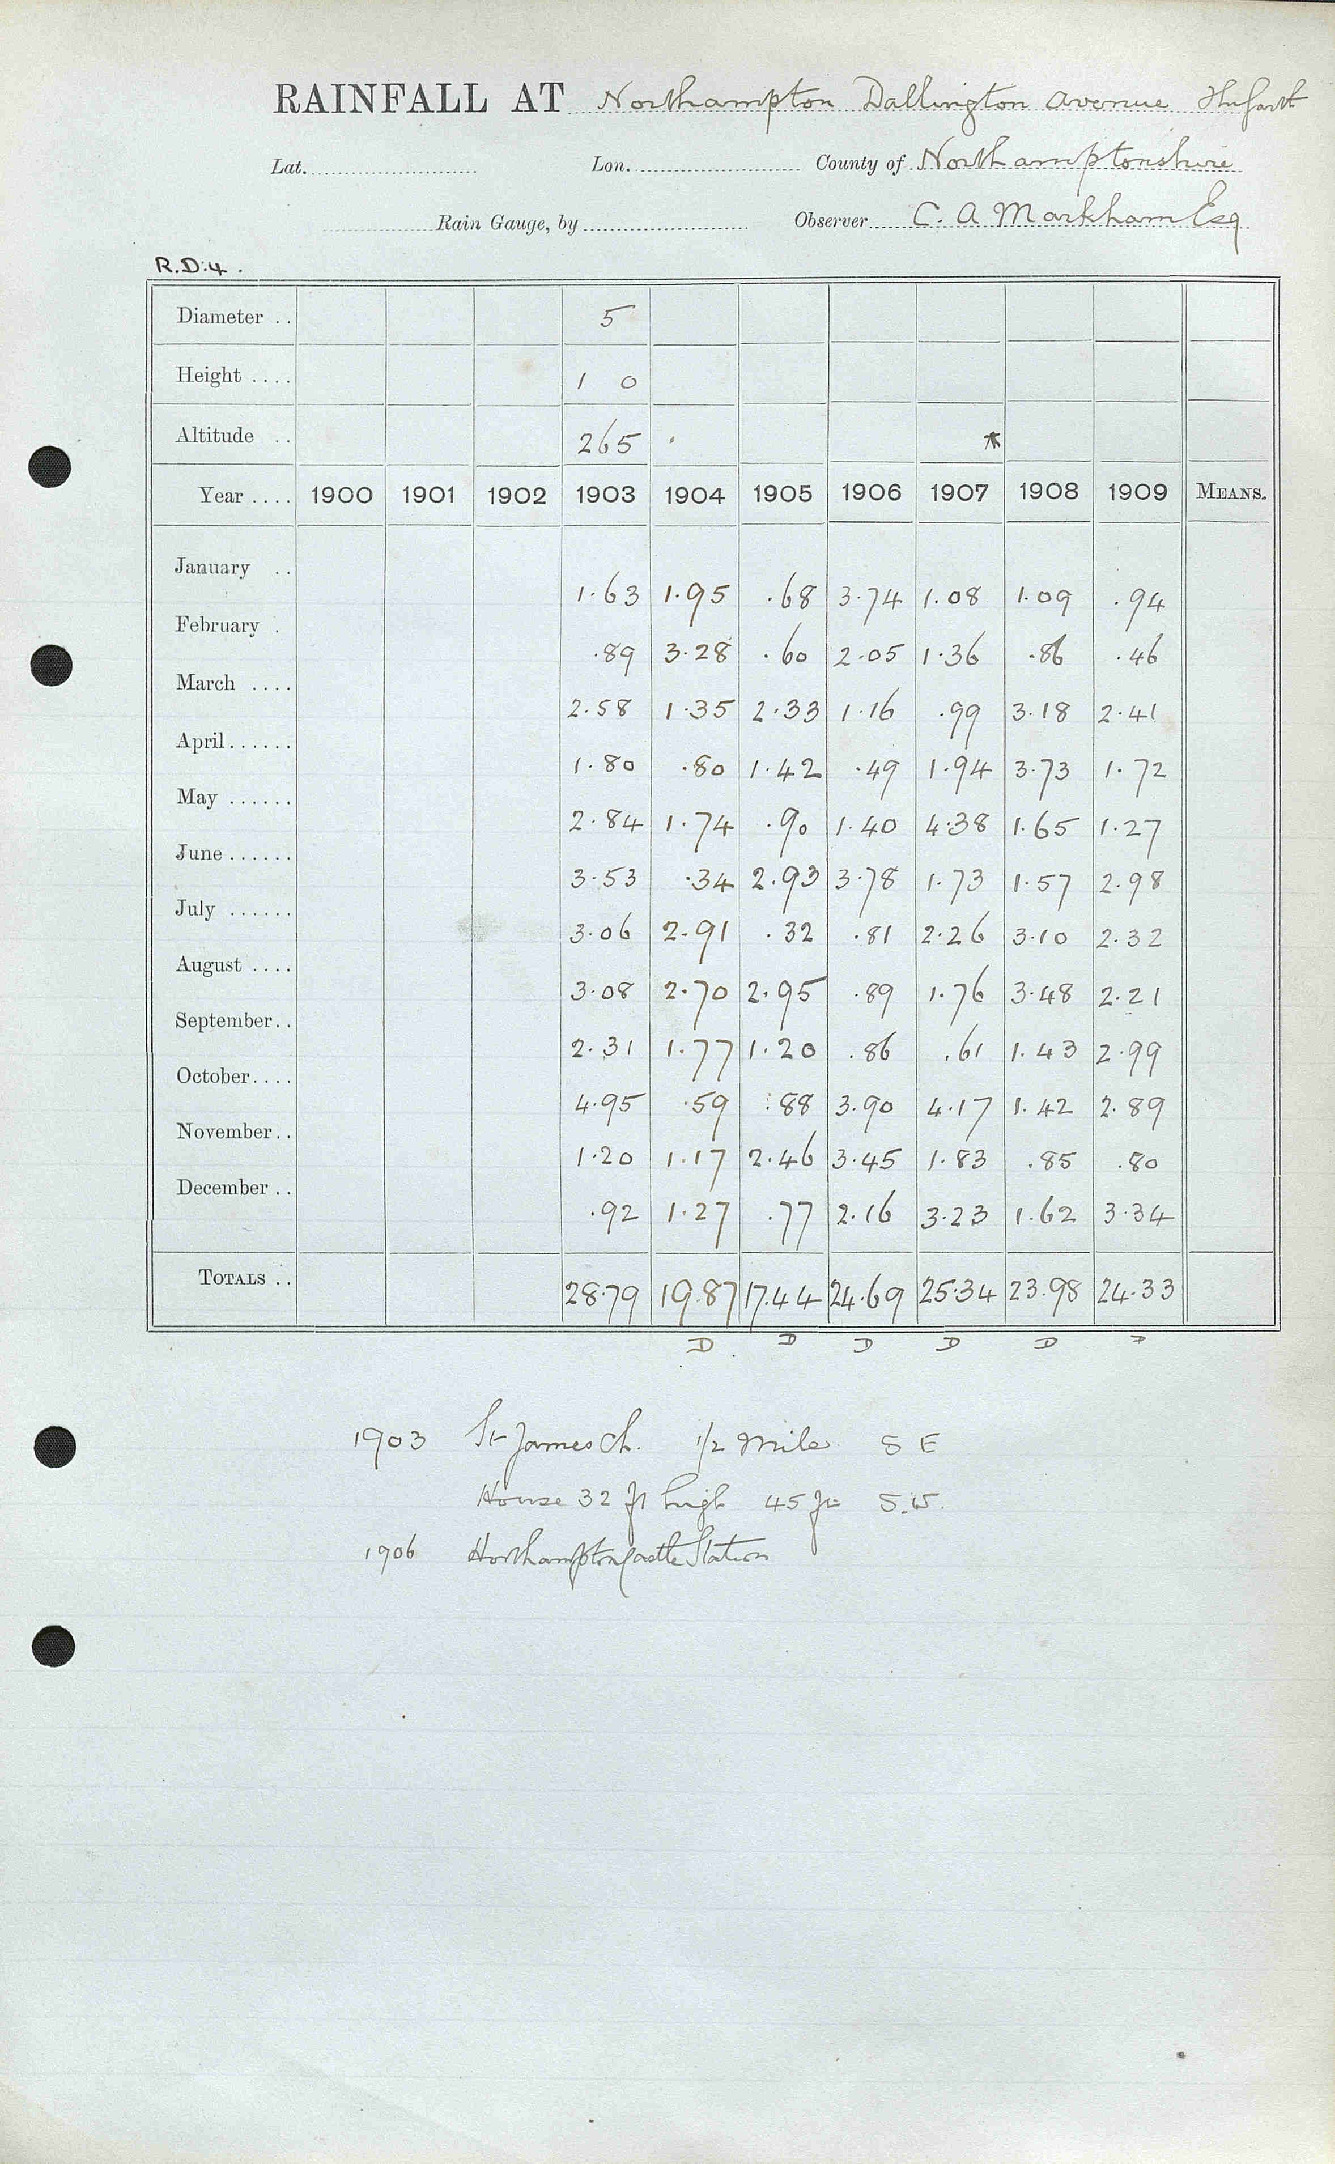 RAINFALL AT Northampton Dallington Avenue
Lat. Lon. County of Northamptonshire
Rain Gauge, by Observer C. A Markham Esq
R.D.4.
Diameter .. 5
Height .... 1 0
Altitude .. 265 *
Year .... 1900 1901 1902 1903 1904 1905 1906 1907 1908 1909 MEANS.
January .. 1.63 1.95 .68 3.74 1.08 1.09 .94
February . .89 3.28 .60 2.05 1.36 .86 .46
March .... 2.58 1.35 2.33 1.16 .99 3.18 2.41
April...... 1.80 .80 1.42 .49 1.94 3.73 1.72
May ...... 2.84 1.74 .90 1.40 4.38 1.65 1.27
June...... 3.53 .34 2.93 3.78 1.73 1.57 2.98
July ...... 3.06 2.91 .32 .81 2.26 3.10 2.32
August .... 3.08 2.70 2.95 .89 1.76 3.48 2.21
September.. 2.31 1.77 1.20 .86 .61 1.43 2.99
October.... 4.95 .59 .88 3.90 4.17 1.42 2.89
November.. 1.20 1.17 2.46 3.45 1.83 .85 .80
December .. .92 1.27 .77 2.16 3.23 1.62 3.34
TOTALS .. 28.79 19.87 17.44 24.69 25.34 23.98 24.33
D D D D D D
1903 St James Ch. 1/2 Mile S E
House 32 ft high 45 ft S.W.
1906 Northampton Castle Station